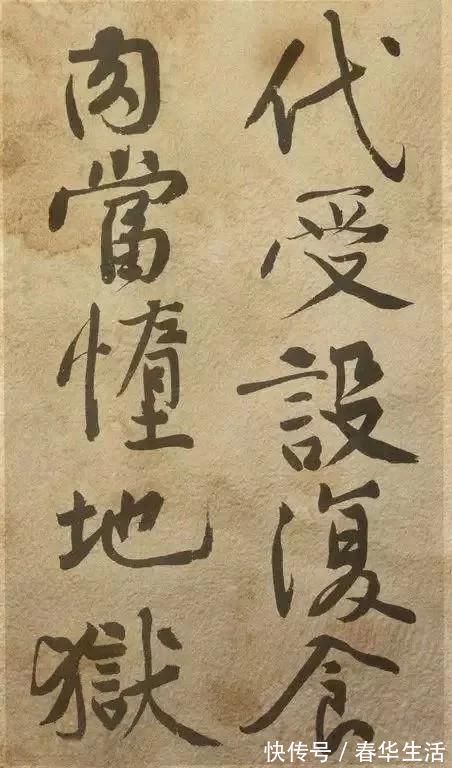 代受設復食
肉當墮地獄
快传号 / 春华生活